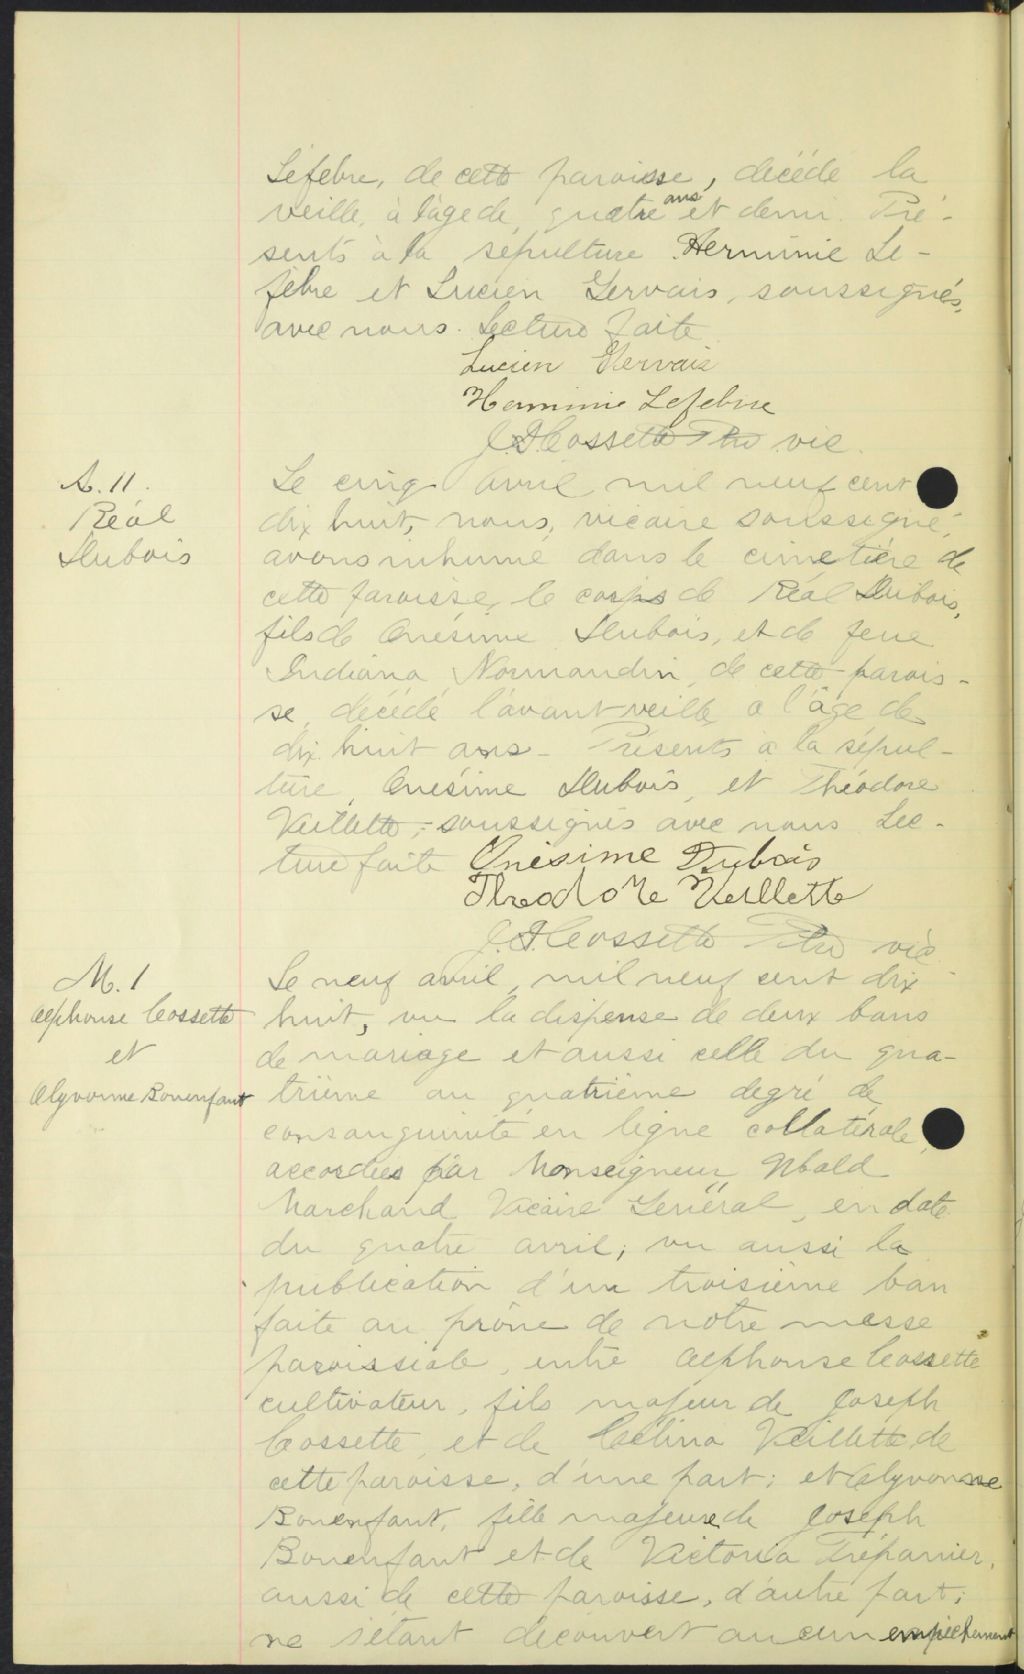 Lefebre, de cette paroisse, décédé la
veille, à l'âge de quatre ans et demi. Pré-
sents à la sépulture Herminie Le-
febre et Lucien Gervais, soussignés,
avec nous. Lecture faite.
Lucien Gervais
Herminie Lefebvre
J.A. Cossette Ptre vic.
S. 11.
Réal
Dubois
Le cinq avril mil neuf cent
dix huit, nous, vicaire soussigné,
avons inhumé dans le cimetière de
cette paroisse, le corps de Réal Dubois,
fils de Onésime Dubois, et de feue
Indiana Normandin, de cette parois-
se, décédé l'avant veille à l'âge de
dix huit ans - Présents à la sépul-
ture, Onésime Dubois, et Théodore
Veillette, soussignés avec nous. Lec-
ture faite Onésime Dubois
Theodore Veillette
J.A. Cossette Ptre vic.
M. 1
Alphonse Cossette
et
Alyvonne Bonenfant
Le neuf avril, mil neuf cent dix
huit, vu la dispense de deux bans
de mariage et aussi celle du qua-
trième au quatrième degré de
consanguinité en ligne collatérale,
accordées par Monseigneur Ubald
Marchand Vicaire Général, en date
du quatre avril; vu aussi la
publication d'un troisième ban
faite au prône de notre messe
paroissiale, entre Alphonse Cossette
cultivateur, fils majeur de Joseph
Cossette, et de Célina Veillette, de
cette paroisse, d'une part; et Alyvonne
Bonenfant, fille majeure de Joseph
Bonenfant et de Victoria Trépanier,
aussi de cette paroisse, d'autre part;
ne s'étant découvert aucun empêchement